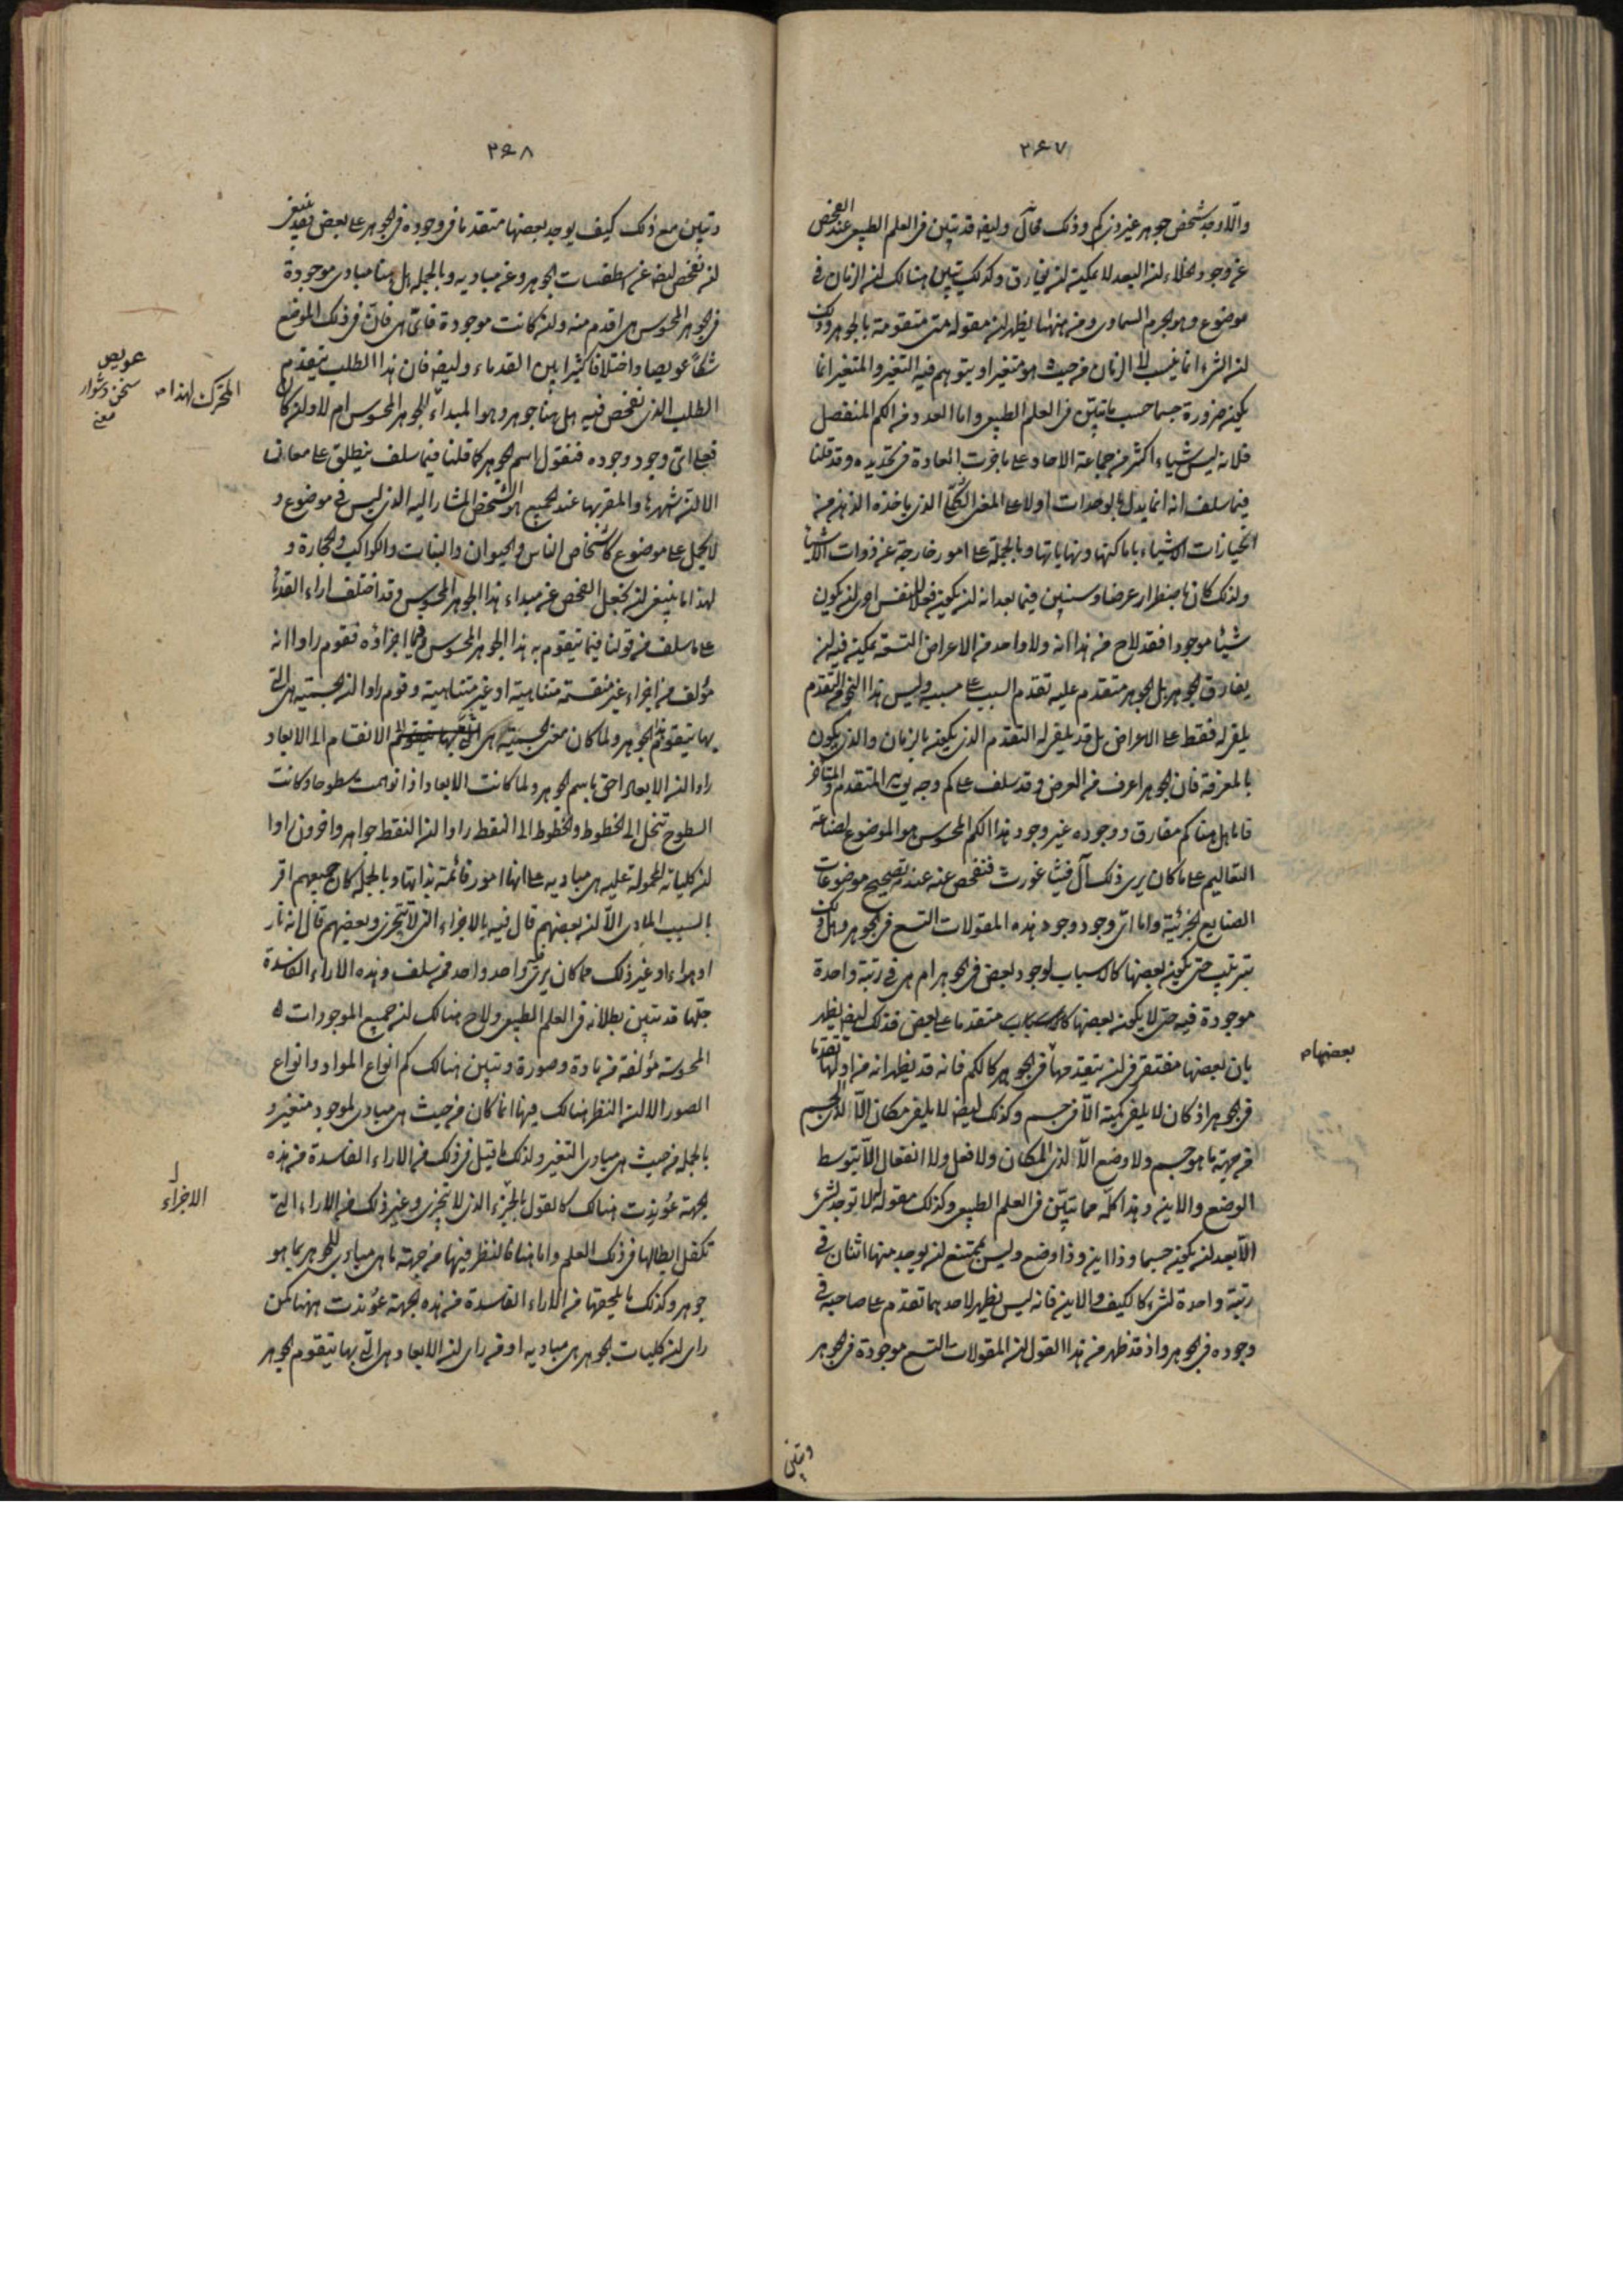 ٢٤٧
والا وجد شخص جوهر غير ذي كم وذلك محال وايضا قد تبين في العلم الطبيعي عند الفحص
عن وجود الخلاء ان البعد لا يمكن ان يفارق وكذلك تبين هنالك ان الزمان في
موضوع وهو الجرم السماوي ومن ههنا يظهر ان مقولة متى متقومة بالجوهر وذلك
ان الشيء انما ينسب الى الزمان من حيث هو متغير او يتوهم فيه التغير والمتغير انما
يكون ضرورة جسما حسب ما تبين في العلم الطبيعي واما العدد من الكم المنفصل
فلانه ليس شيئا اكثر من جماعة الاحاد على ما جرت العادة في تحديده وقد قلنا
فيما سلف انه انما يدل بالوحدات اولا على المعنى الكلي الذي ياخذه الذهن من
انحيازات الاشياء باماكنها ونهاياتها وبالجملة على امور خارجة عن ذوات الاشياء
ولذلك كان باضطرار عرضا وسنبين فيما بعد انه ان يكون فعلا للنفس احرى ان يكون
شيئا موجودا فقد لاح من هذا انه ولا واحد من الاعراض التسعة يمكن فيه ان
يفارق الجوهر بل الجوهر متقدم عليه تقدم السبب على مسببه وليس هذا النحو من التقدم
يلفى له فقط على الاعراض بل قد يلفى له التقدم الذي يكون بالزمان والذي يكون
بالمعرفة فان الجوهر اعرف من العرض وقد سلف على كم وجه يقال المتقدم والمتأخر
فاما هل هنا كم مفارق ووجوده غير وجود هذا الكم المحسوس هو الموضوع لصناعة
التعاليم على ما كان يرى ذلك آل فيثاغورث فنفحص عنه عند تصحيح موضوعات
الصنايع الجزئية واما اي وجود وجود هذه المقولات التسع في الجوهر وهل ذلك
بترتيب حتى يكون بعضها كالاسباب لوجود بعض في الجوهر ام هي في رتبة واحدة
موجودة فيه حتى لا يكون بعضها كالاسباب متقدما على بعض فذلك ايضا يظهر
بان بعضها مفتقر في ان يتقدمها في الجوهر كالكم فانه قد يظهر انه من اولها تقدما
بعضها
في الجوهر اذ كان لا يلفى كيفية الا في جسم وكذلك ايضا لا يلفى مكان الا لذي الجسم
من جهة ما هو جسم ولا وضع الا لذي المكان ولا فعل ولا انفعال الا بتوسط
الوضع والاين وهذا كله مما تبين في العلم الطبيعي وكذلك مقولة له لا توجد لشيء
الا بعد ان يكون جسما وذا اين وذا وضع وليس يمتنع ان يوجد منها اثنان في
رتبة واحدة لشيء كالكيف والاين فانه ليس يظهر لاحدهما تقدم على صاحبه في
وجوده في الجوهر واذ قد ظهر من هذا القول ان المقولات التسع موجودة في الجوهر
وتبين
٢٤٨
وتبين مع ذلك كيف يوجد بعضها متقدما في وجوده في الجوهر على بعض فقد ينبغي
ان نفحص ايضا عن اسطقسات الجوهر وعن مباديه وبالجملة هل هنا مبادي موجودة
في الجوهر المحسوس هي اقدم منه وان كانت موجودة فاي هي فان في ذلك الموضع
شكا عويصا واختلافا كثيرا بين القدماء وايضا فان هذا الطلب يتقدم
عويص
سخن دشوار
معنى
المحرك لهذا
الطلب الذي نفحص فيه هل هنا جوهر وهو المبداء للجوهر المحسوس ام لا وان كان
فعلى اي وجود وجوده فنقول اسم الجوهر كما قلنا فيما سلف ينطلق على معان
الا ان اشهرها والمقر بها عند الجميع هو الشخص المشار اليه الذي ليس في موضوع و
لا يحمل على موضوع كاشخاص الناس والحيوان والنبات والكواكب والحجارة و
لهذا ما ينبغي ان نجعل الفحص عن مبداء هذا الجوهر المحسوس وقد اختلف اراء القدماء
على ما سلف من قولنا فيما يتقوم به هذا الجوهر المحسوس وفيما اجزاؤه فقوم راوا انه
مؤلف من اجزاء غير منقسمة متناهية او غير متناهية وقوم راوا ان الجسمية هي التي
بها يتقوم هذا الجوهر ولما كان معنى الجسمية هي الانقسام الى الابعاد
راوا ان الابعاد احق باسم الجوهر ولما كانت الابعاد اذا توهمت سطوحا وكانت
السطوح تنحل الى الخطوط والخطوط الى النقط راوا ان النقط جواهر واخرون راوا
ان كلياته المحمولة عليه هي مباديه على انها امور قائمة بذاتها وبالجملة كان جميعهم اقر
بالسبب المادي الا ان بعضهم قال فيه بالاجزاء التي لا تتجزى وبعضهم قال انه نار
او هواء او غير ذلك مما كان يرى واحد واحد ممن سلف وهذه الاراء الفاسدة
جلها قد تبين بطلانه في العلم الطبيعي ولاح هنالك ان جميع الموجودات
المحسوسة مؤلفة من مادة وصورة وتبين هنالك كم انواع المواد وانواع
الصور الا ان النظر هنالك فيها انما كان من حيث هي مبادي لموجود متغير و
بالجملة من حيث هي مبادي التغير ولذلك ما قيل في ذلك من الاراء الفاسدة من هذه
الجهة عوندت هنالك كالقول بالجزء الذي لا يتجزى وغير ذلك من الاراء التي
الاجزاء
تكفل ابطالها في ذلك العلم واما هنا فالنظر فيها من جهة ما هي مبادي للجوهر بما هو
جوهر وكذلك ما يلحقها من الاراء الفاسدة من هذه الجهة عوندت ههنا كمن
راى ان كليات الجوهر هي مباديه او من راى ان الابعاد هي التي بها يتقوم الجوهر